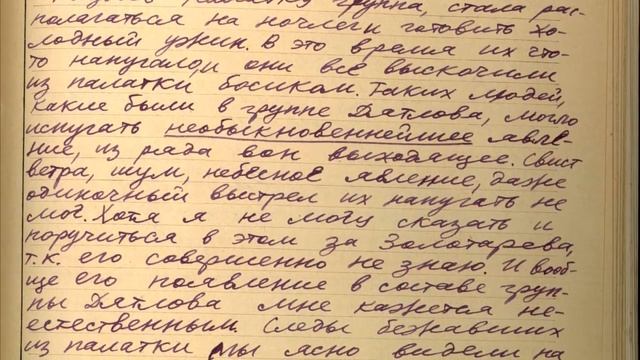 палатку группа, стала рас-
полагаться на ночлег и готовить хо-
лодный ужин. В это время их что-
то напугало, и они все выскочили
из палатки босиком. Таких людей,
какие были в группе Дятлова, могло
испугать необыкновеннейшее явле-
ние, из ряда вон выходящее. Свист
ветра, шум, небесное явление, даже
одиночный выстрел их напугать не
мог. Хотя я не могу сказать и
поручиться в этом за Золотарева,
т.к. его совершенно не знаю. И вооб-
ще его появление в составе груп-
пы Дятлова мне кажется не-
естественным. Следы бежавших
из палатки мы ясно видели на